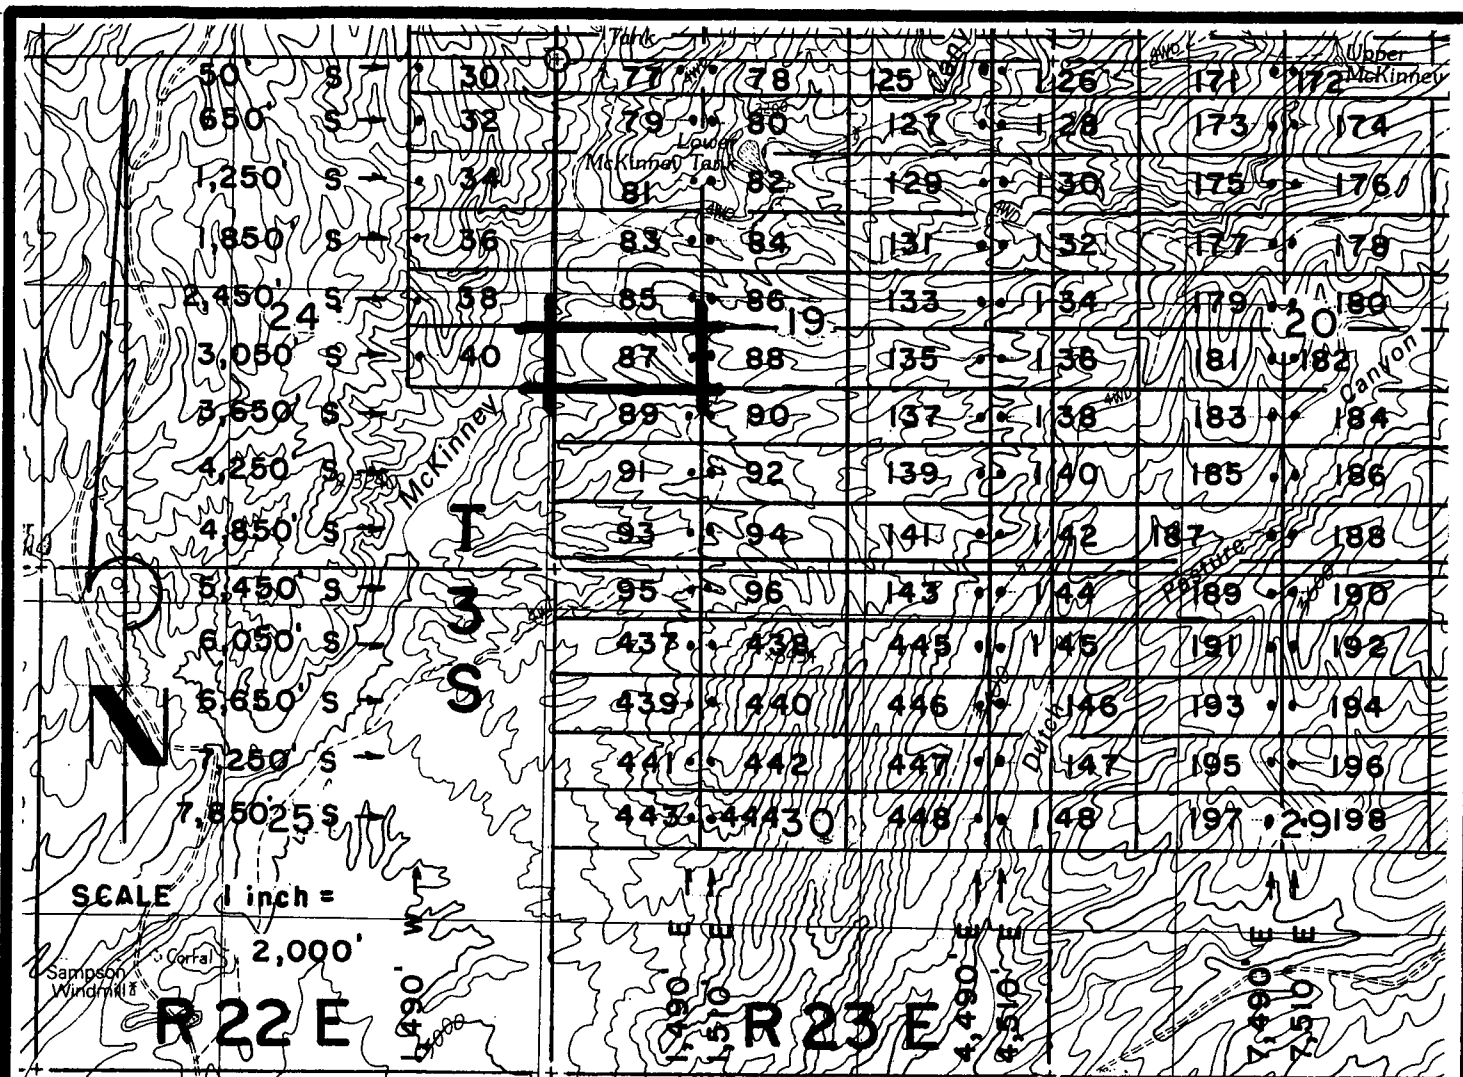 Tank
Upper
McKinney
50' S 30 77 4WD 78 125 Cany 126 4WD 171 172
650' S 32 79 80 127 128 173 174
Lower
McKinney Tank
1,250' S 34 81 82 129 130 175 176
4WD 4WD
1,850' S 36 83 84 131 132 177 178
2,450' S 38 85 86 133 134 179 180
24 19 20
3,050' S 40 87 88 135 136 181 182
Canyon
3,650' S 89 90 137 138 4WD 183 184
McKinney
4,250' S 91 92 139 140 185 186
T
4,850' S 93 94 141 142 187 188
Pasture
5,450' S 95 96 143 144 189 190
3
4WD
6,050' S 437 438 445 145 191 192
S
6,650' S 439 440 446 146 193 194
Dutch
N
7,250' S 441 442 447 147 195 196
7,850' 25 S 443 444 30 448 148 197 29 198
SCALE 1 inch =
2,000'
Corral
Sampson
Windmill
R 22 E R 23 E
1,490' W
1,490' E
1,510' E
4,490' E
4,510' E
7,490' E
7,510' E